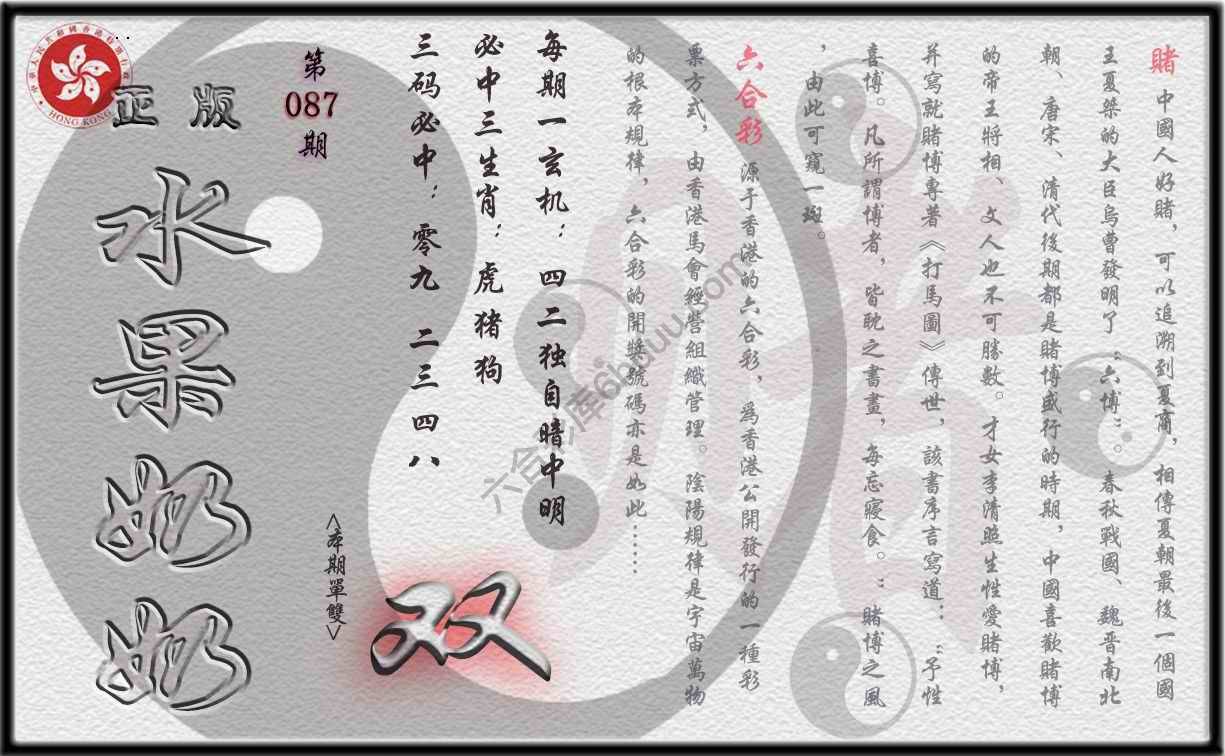 賭 中國人好賭，可以追溯到夏商，相傳夏朝最後一個國
王夏桀的大臣烏曹發明了“六博”。春秋戰國、魏晋南北
朝、唐宋、清代後期都是賭博盛行的時期，中國喜歡賭博
的帝王將相、文人也不可勝數。才女李清照生性愛賭博，
并寫就賭博專著《打馬圖》傳世，該書序言寫道：“予性
喜博。凡所謂博者，皆耽之書畫，每忘寢食。”賭博之風
，由此可窺一斑。
六合彩 源于香港的六合彩，為香港公開發行的一種彩
票方式，由香港馬會經營組織管理。陰陽規律是宇宙萬物
的根本規律，六合彩的開獎號碼亦是如此……
每期一玄机：四二独自暗中明
必中三生肖：虎猪狗
三码必中：零九 二三 四八
第
087
期
<本期單雙>
双
正版
水果奶奶
HONG KONG
六合彩库6hduu.com